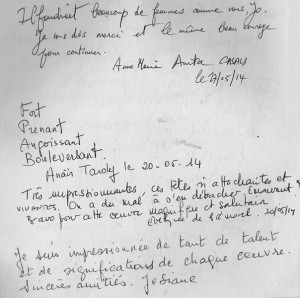 Il faudrait beaucoup de femmes comme vous, Jo.
Je vous dis merci et le même beau courage
pour continuer.
Anne Marie
le 17/05/14
Fort
Prenant
Angoissant
Bouleversant.
Anaïs le 20-05-14
Très impressionnantes, ces têtes si attachantes et
VIVANTES. On a du mal à s'en détacher. Emouvant
Bravo pour cette œuvre magnifique et salutaire
20/05/14
Je suis impressionnée de tant de talent
et de significations de chaque œuvre.
Sincères amitiés. Josiane